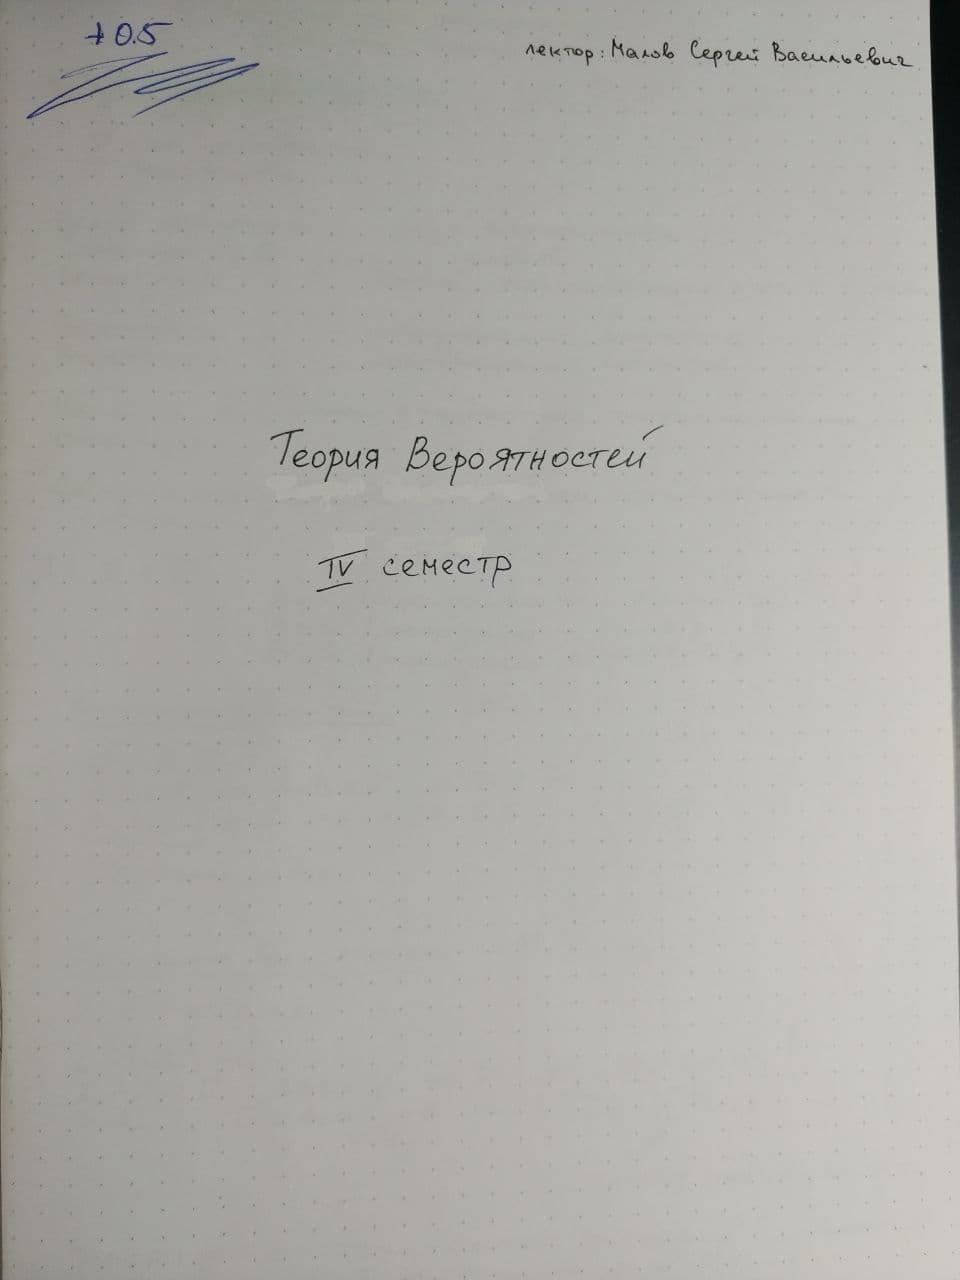 +0.5
лектор: Малов Сергей Васильевич
Теория Вероятностей
IV семестр